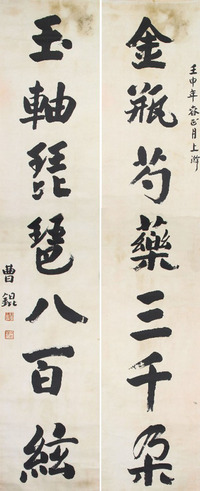 壬申年
月上澣
金瓶芍藥三千朵
玉軸琵琶八百絃
曹錕